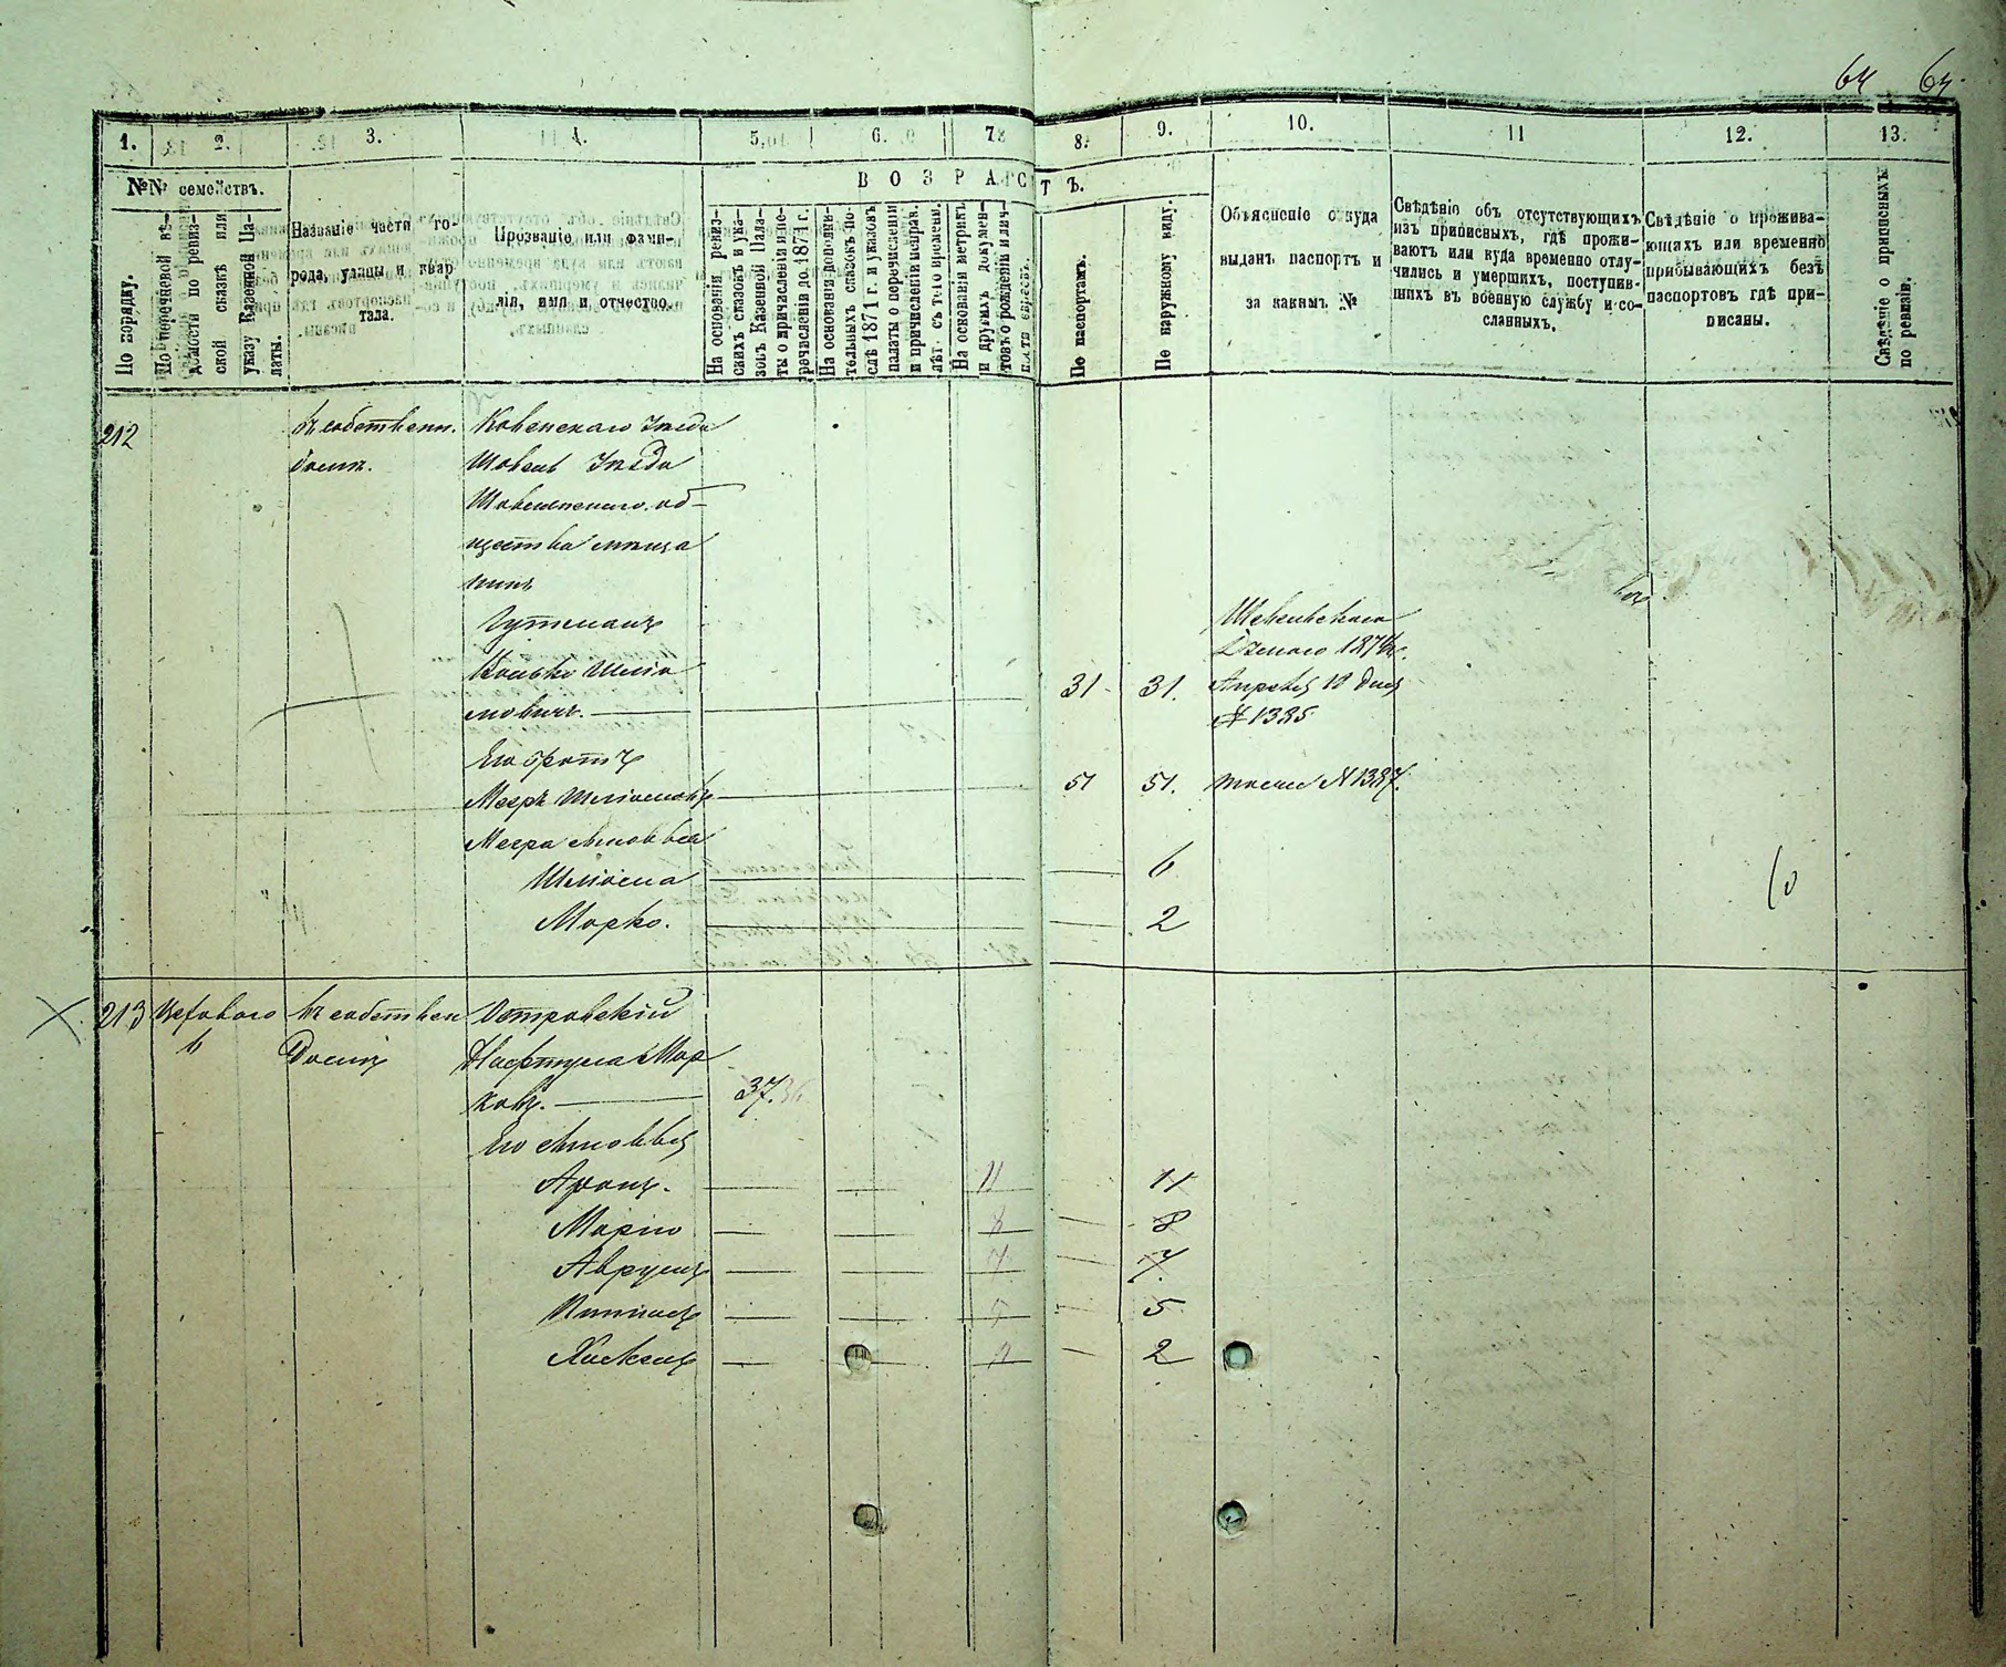 64 64.
1. 2. 3. 4. 5. 6. 7. 8. 9. 10. 11 12. 13.
№№ семействъ.
В О З Р А С Т Ъ.
По порядку.
По поречневой вѣ-
домости по ревиз-
ской сказкѣ или
указу Казенной Па-
латы.
Названіе части го-
рода, улицы и квар
тала.
Прозваніе или фами-
лія, имя и отчество.
На основаніи ревиз-
скихъ сказокъ и ука-
зовъ Казенной Пала-
ты о причисленіи и пе-
речисленіи до 1871 г.
На основаніи дополни-
тельныхъ сказокъ по-
слѣ 1871 г. и указовъ
палаты о перечисленіи
и причисленіи исправ.
лѣт. съ того времени.
На основаніи метрикъ
и другихъ докумен-
товъ о рожденіи
По паспортамъ.
По наружному виду.
Объясненіе откуда
выданъ паспортъ и
за какимъ №
Свѣдѣніе объ отсутствующихъ
изъ приписныхъ, гдѣ прожи-
ваютъ или куда временно отлу-
чились и умершихъ, поступив-
шихъ въ военную службу и со-
сланныхъ.
Свѣдѣніе о прожива-
ющахъ или временно
прибывающихъ безъ
паспортовъ гдѣ при-
писаны.
Свѣдѣніе о приписныхъ
по ревизіи.
212 въ собственн. Ковенскаго Уѣзда
домѣ. Шавель Уѣзда
Шавельскаго об-
щества мѣща
нинъ
Гутманъ
31 31. Апрѣля 12 дня
мовичъ.
№ 1385
Его братъ
51 51. № 1387.
Меера сыновья
Шлiома 6
Марко. 2
213 Цеховаго въ собствен Островскій
6 домѣ Нафтула Мар
ковъ. 37.36
Его сыновья
Аронъ. 11 11
8 8
7 7.
5 5
2 2